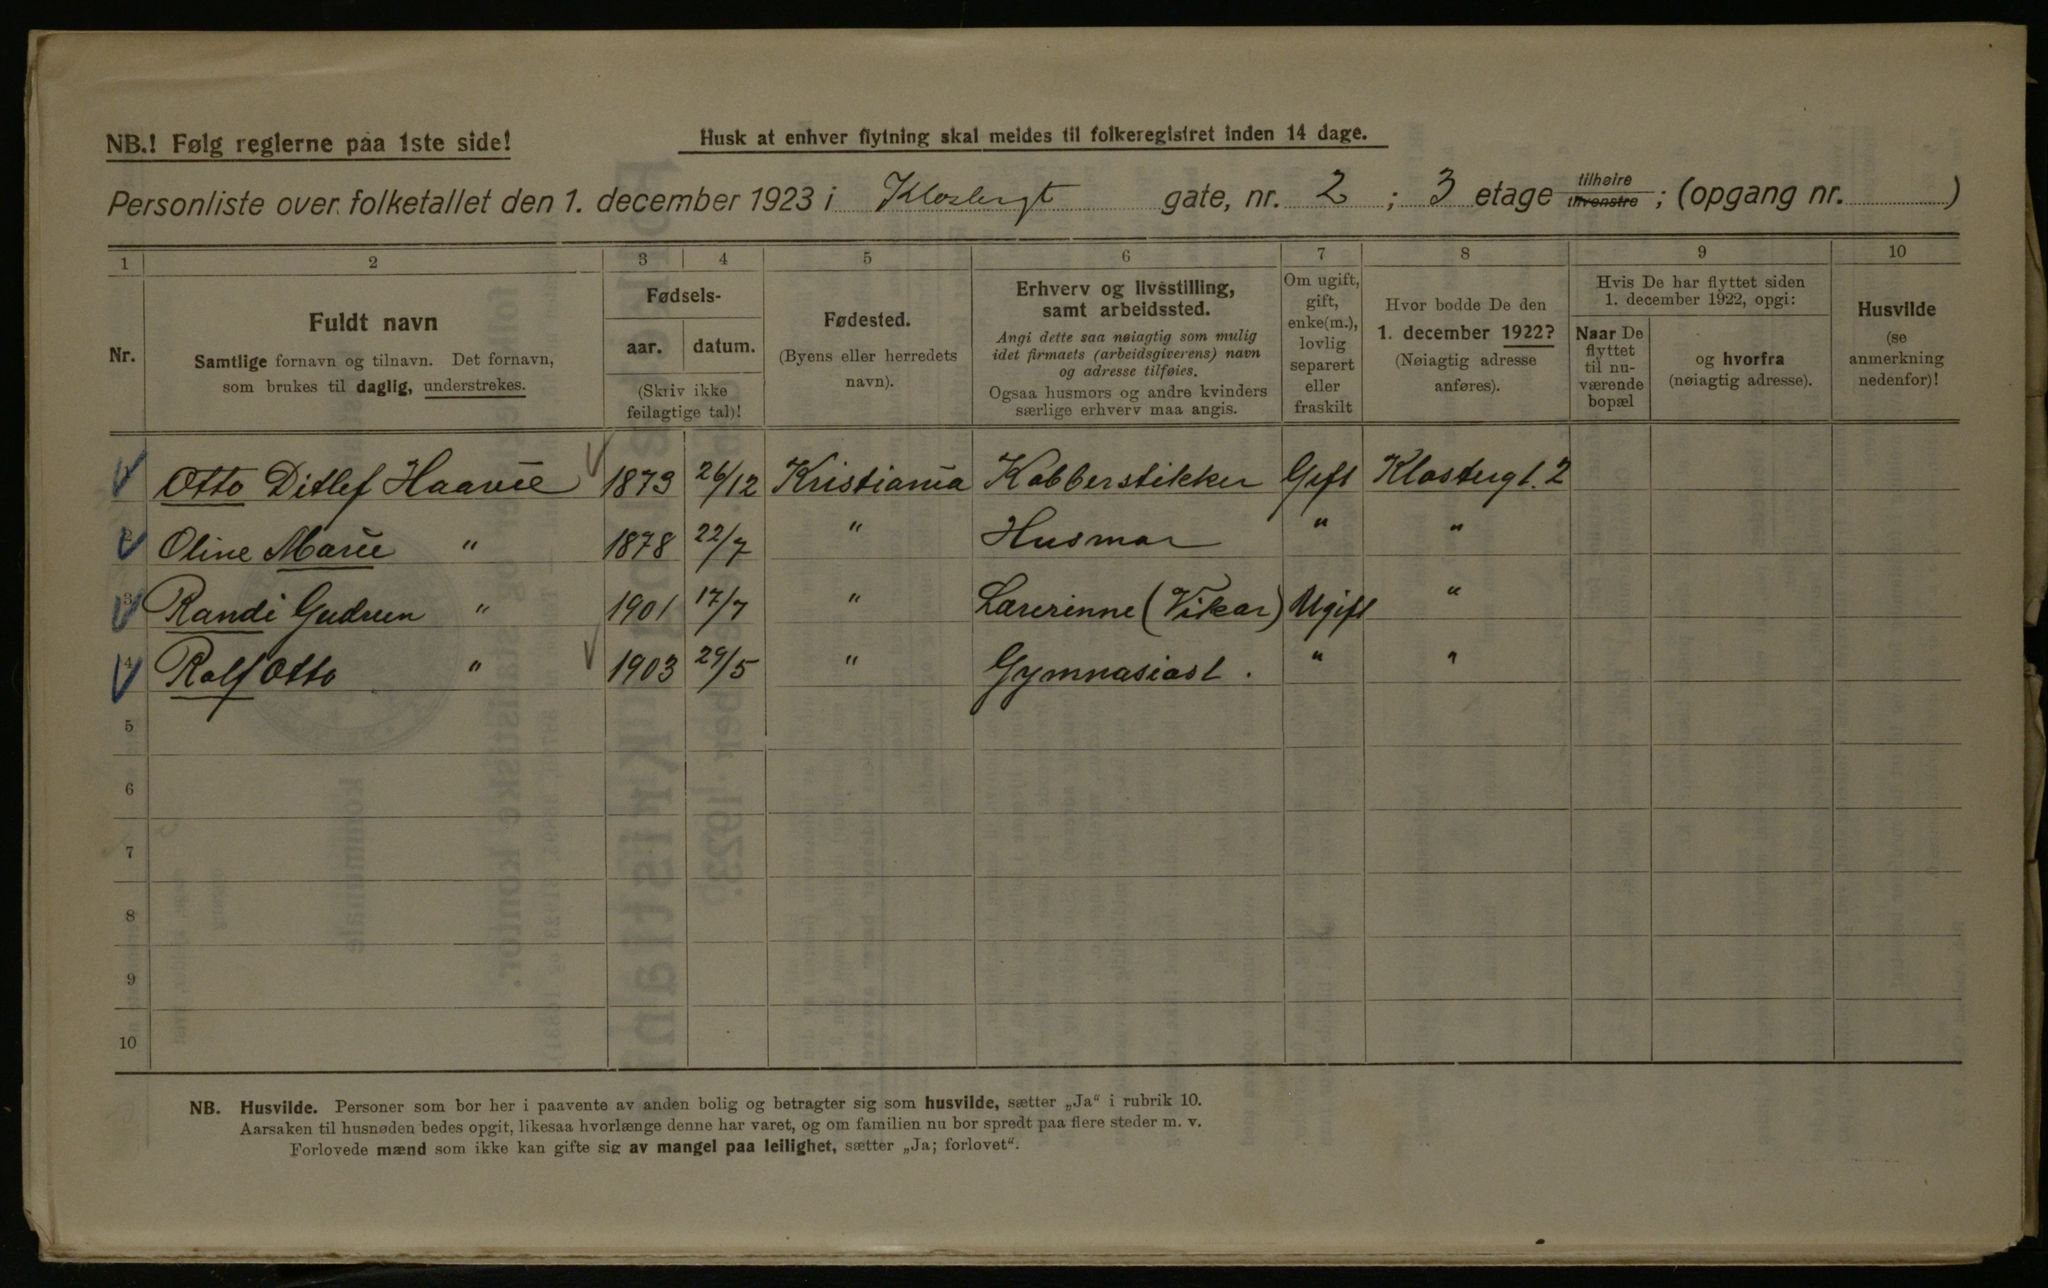 NB.! Følg reglerne paa 1ste side!
Husk at enhver flytning skal meldes til folkeregistret inden 14 dage.
Personliste over folketallet den 1. december 1923 i Klostergt gate, nr. 2 ; 3 etage tilhøire tilvenstre ; (opgang nr. )
1 2 3 4 5 6 7 8 9 10
Nr.
Fuldt navn
Samtlige fornavn og tilnavn. Det fornavn,
som brukes til daglig, understrekes.
Fødsels-
aar. datum.
(Skriv ikke
feilagtige tal)!
Fødested.
(Byens eller herredets
navn).
Erhverv og livsstilling,
samt arbeidssted.
Angi dette saa nøiagtig som mulig
idet firmaets (arbeidsgiverens) navn
og adresse tilføies.
Ogsaa husmors og andre kvinders
særlige erhverv maa angis.
Om ugift,
gift,
enke(m.),
lovlig
separert
eller
fraskilt
Hvor bodde De den
1. december 1922?
(Nøiagtig adresse
anføres).
Hvis De har flyttet siden
1. december 1922, opgi:
Naar De
flyttet
til nu-
værende
bopæl
og hvorfra
(nøiagtig adresse).
Husvilde
(se
anmerkning
nedenfor)!
1 Otto Ditlef Haavie 1873 26/12 Kristiania Kobberstikker Gift Klostergt. 2
2 Oline Marie " 1878 22/7 " Husmor " "
3 Randi Gudrun " 1901 17/7 " Lærerinne (Vikar) Ugift "
4 Rolf Otto " 1903 29/5 " Gymnasiast . " "
5
6
7
8
9
10
NB. Husvilde. Personer som bor her i paavente av anden bolig og betragter sig som husvilde, sætter „Ja“ i rubrik 10.
Aarsaken til husnøden bedes opgit, likesaa hvorlænge denne har varet, og om familien nu bor spredt paa flere steder m. v.
Forlovede mænd som ikke kan gifte sig av mangel paa leilighet, sætter „Ja; forlovet“.